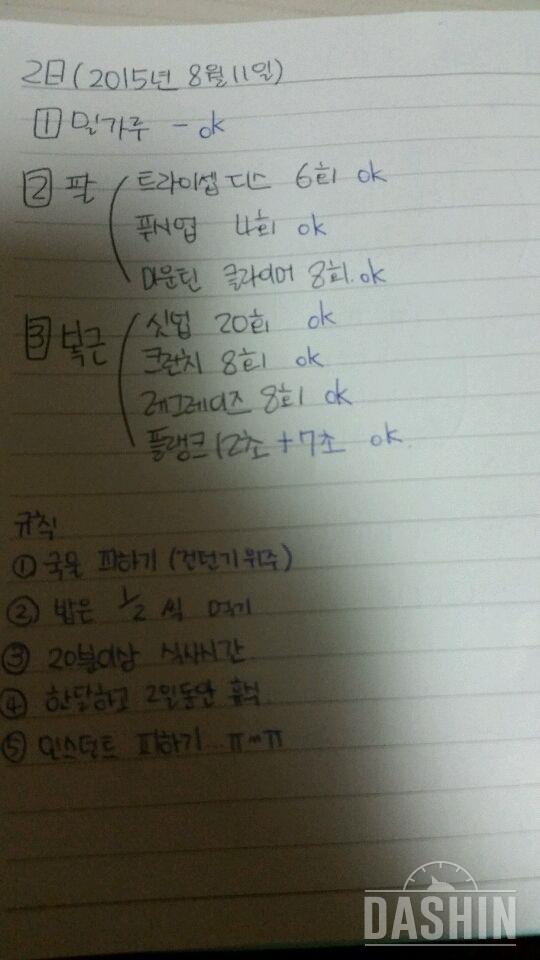 2日 (2015년 8월 11일)
1 밀가루 - ok
2 팔 트라이셉 디스 6회 ok
푸시업 4회 ok
마운틴 클라이머 8회. ok
3 복근 싯업 20회 ok
크런치 8회 ok
레그레이즈 8회 ok
플랭크 12초 + 7초 ok
규칙
① 국물 피하기 (건더기위주)
② 밥은 1/2 씩 먹기
③ 20분이상 식사시간
④ 한달하고 2일동안 휴식
⑤ 인스턴트 피하기... ㅠㅠ
DASHIN